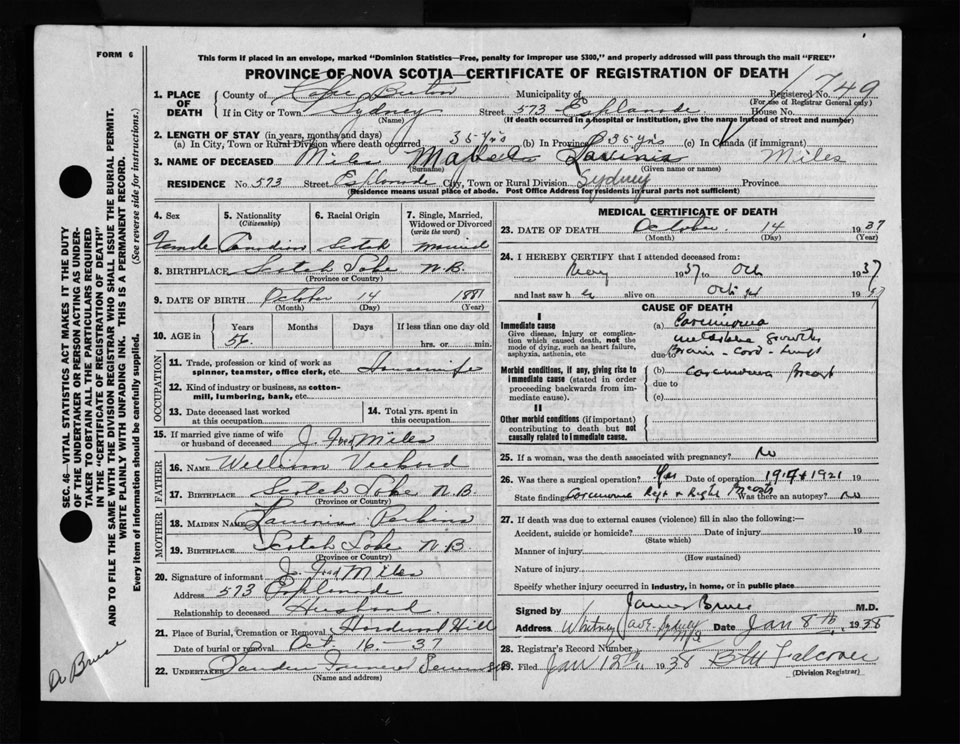 FORM 6
This form if placed in an envelope, marked "Dominion Statistics—Free, penalty for improper use $300," and properly addressed will pass through the mail "FREE"
PROVINCE OF NOVA SCOTIA—CERTIFICATE OF REGISTRATION OF DEATH
1. PLACE OF DEATH County of Cape Breton Municipality of Registered No. 749
(For use of Registrar General only)
If in City or Town Sydney Street 573 Esplanade House No.
(Name) (If death occurred in a hospital or institution, give the name instead of street and number)
2. LENGTH OF STAY (in years, months and days)
(a) In City, Town or Rural Division where death occurred 35 yrs (b) In Province 35 yrs (c) In Canada (if immigrant)
3. NAME OF DECEASED Miles Lavinia Miles
(Surname) (Given name or names)
RESIDENCE No. 573 Street Esplanade City, Town or Rural Division Sydney Province
(Residence means usual place of abode. Post Office Address for residents in rural parts not sufficient)
4. Sex 5. Nationality (Citizenship) 6. Racial Origin 7. Single, Married, Widowed or Divorced (write the word)
Female Canadian Scotch Married
8. BIRTHPLACE Scotch Lake N.B.
(Province or Country)
9. DATE OF BIRTH October 14 1881
(Month) (Day) (Year)
10. AGE in Years Months Days If less than one day old
56 hrs. or min.
OCCUPATION
11. Trade, profession or kind of work as spinner, teamster, office clerk, etc. Housewife
12. Kind of industry or business, as cotton-mill, lumbering, bank, etc.
13. Date deceased last worked at this occupation
14. Total yrs. spent in this occupation
15. If married give name of wife or husband of deceased J. Fred Miles
FATHER
16. NAME William
17. BIRTHPLACE Scotch Lake N.B.
(Province or Country)
MOTHER
18. MAIDEN NAME Lavinia Perkins
19. BIRTHPLACE Scotch Lake N.B.
(Province or Country)
20. Signature of informant J. Fred Miles
Address 573 Esplanade
Relationship to deceased Husband
21. Place of Burial, Cremation or Removal Hardwood Hill
Date of burial or removal Oct. 16 - 37
22. UNDERTAKER
(Name and address)
MEDICAL CERTIFICATE OF DEATH
23. DATE OF DEATH October 14 1937
(Month) (Day) (Year)
24. I HEREBY CERTIFY that I attended deceased from:
May 1937 to Oct 1937
and last saw h er alive on Oct 1937
CAUSE OF DEATH
I
Immediate cause
Give disease, injury or complication which caused death, not the mode of dying, such as heart failure, asphyxia, asthenia, etc
(a) Carcinoma
metastatic growths
due to Brain - Cord - Lungs
Morbid conditions, if any, giving rise to immediate cause (stated in order proceeding backwards from immediate cause).
(b) Carcinoma Breast
due to
(c)
II
Other morbid conditions (if important) contributing to death but not causally related to immediate cause.
25. If a woman, was the death associated with pregnancy? No
26. Was there a surgical operation? Yes Date of operation 1921 19
State finding Carcinoma Breasts Was there an autopsy? No
27. If death was due to external causes (violence) fill in also the following:—
Accident, suicide or homicide? Date of injury 19
(State which)
Manner of injury
(How sustained)
Nature of injury
Specify whether injury occurred in industry, in home, or in public place
Signed by James Bruce M.D.
Address Whitney Ave. Sydney Date Jan 8th, 1938
28. Registrar's Record Number
29. Filed Jan 12th, 1938 Falconer
(Division Registrar)
SEC. 46—VITAL STATISTICS ACT MAKES IT THE DUTY
OF THE UNDERTAKER OR PERSON ACTING AS UNDER-
TAKER TO OBTAIN ALL THE PARTICULARS REQUIRED
IN THE "CERTIFICATE OF REGISTRATION OF DEATH"
AND TO FILE THE SAME WITH THE DIVISION REGISTRAR WHO SHALL ISSUE THE BURIAL PERMIT.
WRITE PLAINLY WITH UNFADING INK. THIS IS A PERMANENT RECORD.
Every item of information should be carefully supplied. (See reverse side for instructions.)
Dr Bruce